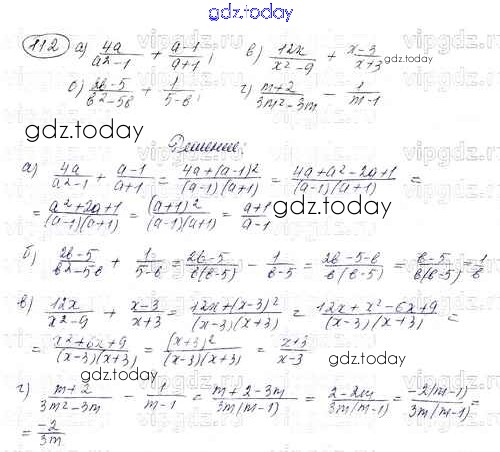 gdz.today
112 а) 4a/(a²-1) + (a-1)/(a+1); в) 12x/(x²-9) + (x-3)/(x+3)
gdz.today
б) (2в-5)/(в²-5в) + 1/(5-в); г) (m+2)/(3m²-3m) - 1/(m-1)
gdz.today
Решение:
а) 4a/(a²-1) + (a-1)/(a+1) = (4a+(a-1)²)/((a-1)(a+1)) = (4a+a²-2a+1)/((a-1)(a+1)) =
= (a²+2a+1)/((a-1)(a+1)) = (a+1)²/((a-1)(a+1)) = (a+1)/(a-1)
gdz.today
б) (2в-5)/(в²-5в) + 1/(5-в) = (2в-5)/(в(в-5)) - 1/(в-5) = (2в-5-в)/(в(в-5)) = (в-5)/(в(в-5)) = 1/в
в) 12x/(x²-9) + (x-3)/(x+3) = (12x+(x-3)²)/((x-3)(x+3)) = (12x+x²-6x+9)/((x-3)(x+3)) =
= (x²+6x+9)/((x-3)(x+3)) = (x+3)²/((x-3)(x+3)) = (x+3)/(x-3)
gdz.today
gdz.today
г) (m+2)/(3m²-3m) - 1/(m-1) = (m+2-3m)/(3m(m-1)) = (2-2m)/(3m(m-1)) = -2(m-1)/(3m(m-1)) =
= -2/3m
gdz.today